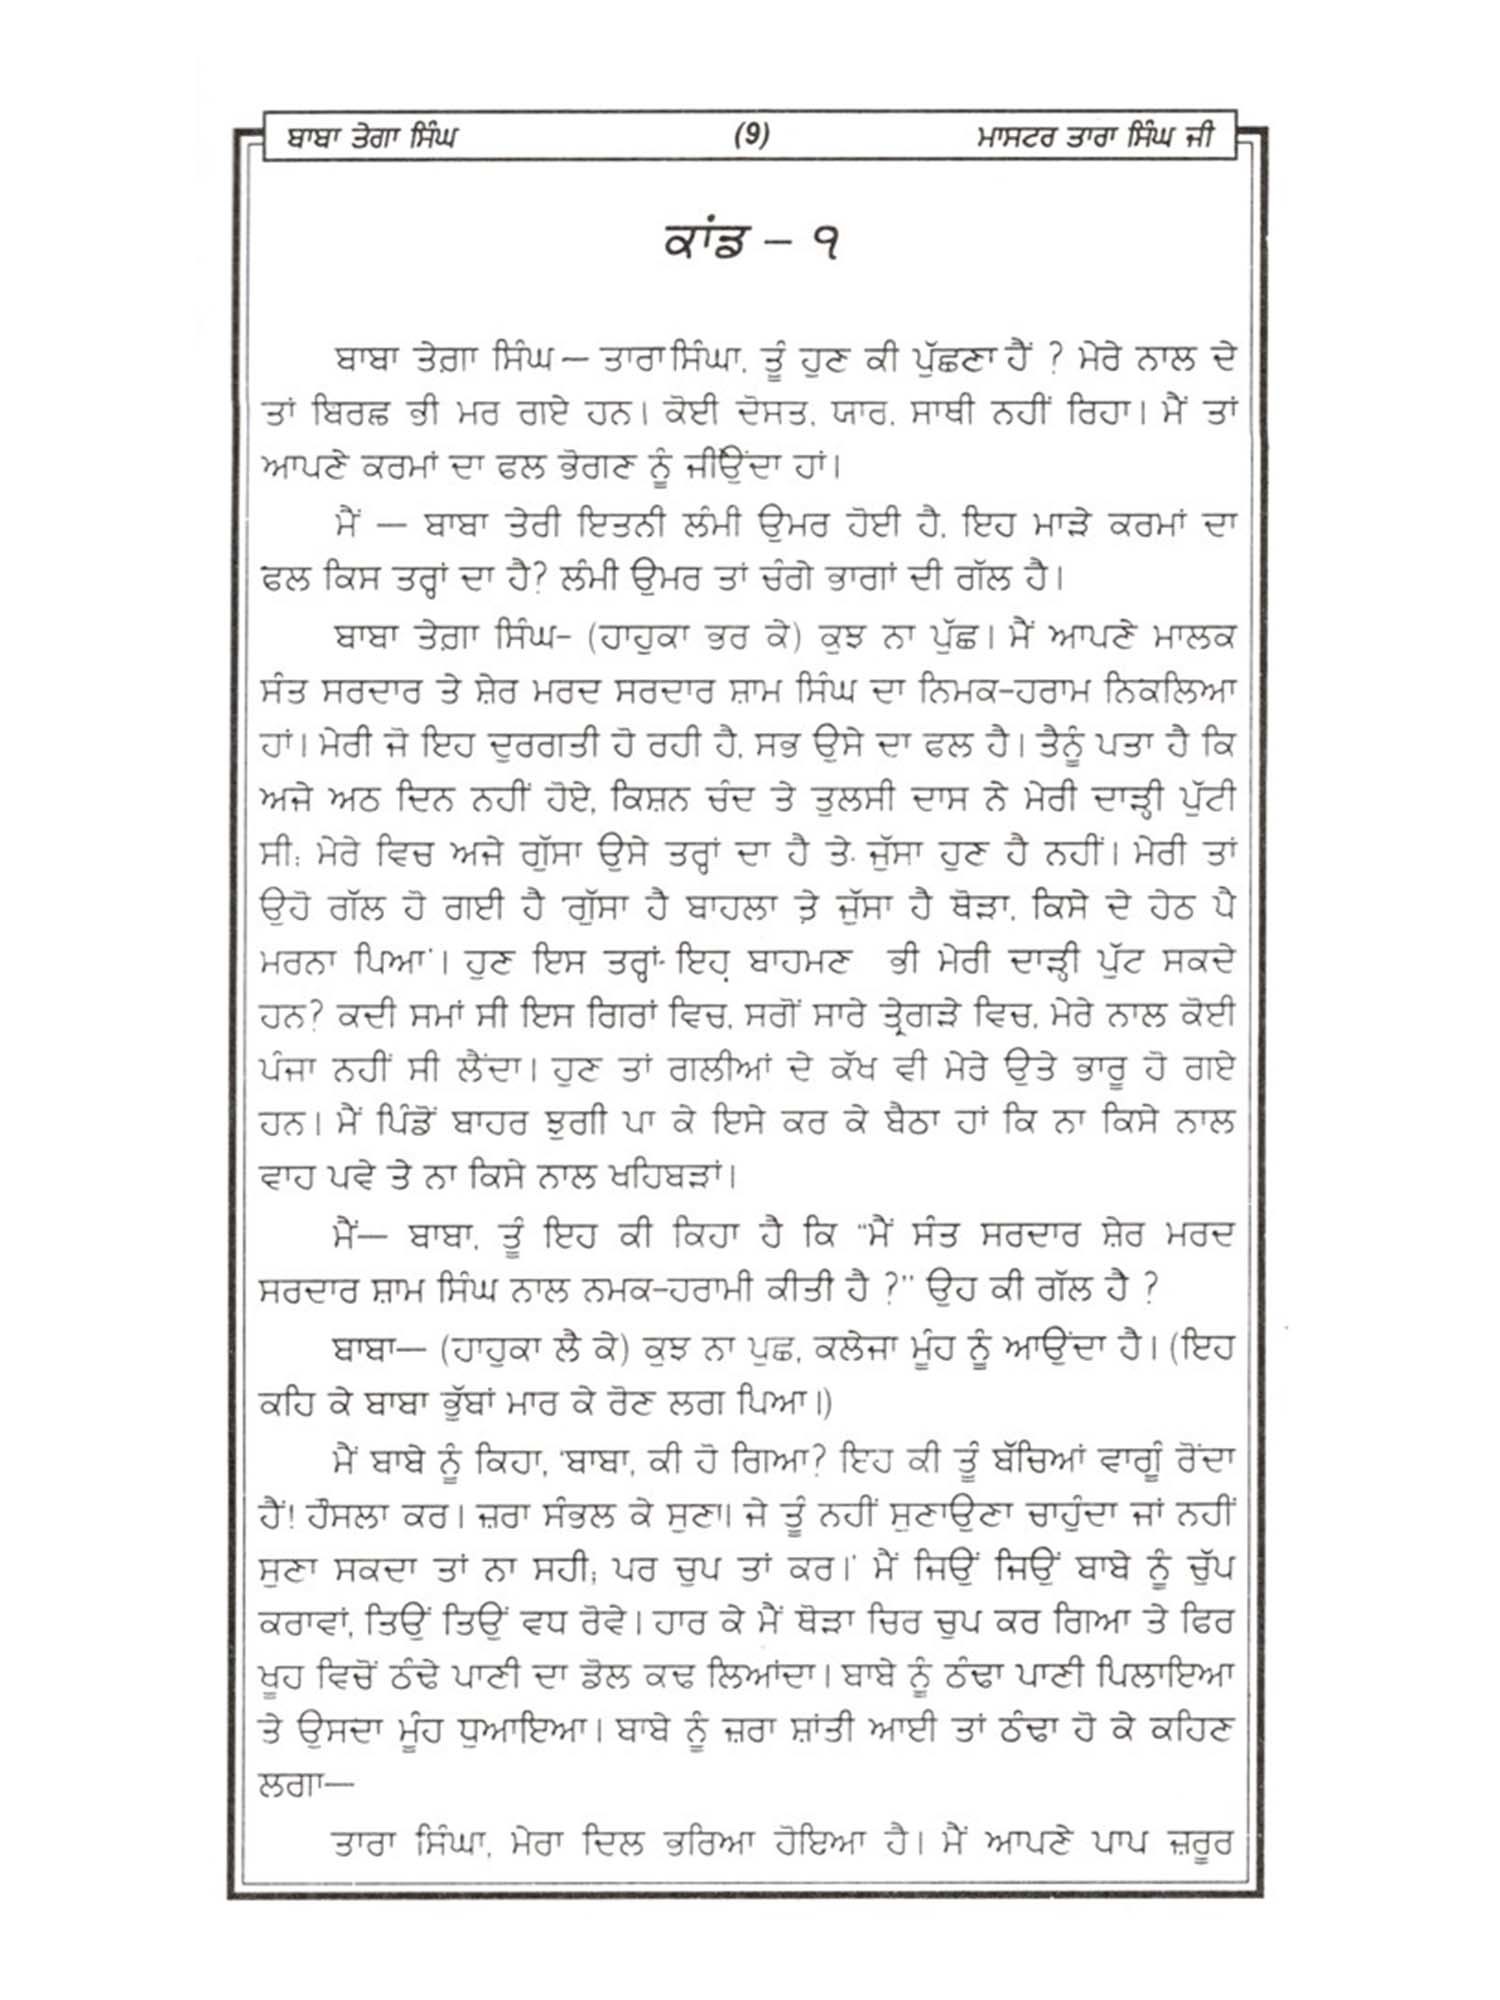 ਬਾਬਾ ਤੇਗਾ ਸਿੰਘ (9) ਮਾਸਟਰ ਤਾਰਾ ਸਿੰਘ ਜੀ
ਕਾਂਡ – ੧
ਬਾਬਾ ਤੇਗ਼ਾ ਸਿੰਘ— ਤਾਰਾ ਸਿੰਘਾ, ਤੂੰ ਹੁਣ ਕੀ ਪੁੱਛਣਾ ਹੈਂ ? ਮੇਰੇ ਨਾਲ ਦੇ
ਤਾਂ ਬਿਰਛ ਭੀ ਮਰ ਗਏ ਹਨ। ਕੋਈ ਦੋਸਤ, ਯਾਰ, ਸਾਥੀ ਨਹੀਂ ਰਿਹਾ। ਮੈਂ ਤਾਂ
ਆਪਣੇ ਕਰਮਾਂ ਦਾ ਫਲ ਭੋਗਣ ਨੂੰ ਜੀਉਂਦਾ ਹਾਂ।
ਮੈਂ — ਬਾਬਾ ਤੇਰੀ ਇਤਨੀ ਲੰਮੀ ਉਮਰ ਹੋਈ ਹੈ, ਇਹ ਮਾੜੇ ਕਰਮਾਂ ਦਾ
ਫਲ ਕਿਸ ਤਰ੍ਹਾਂ ਦਾ ਹੈ? ਲੰਮੀ ਉਮਰ ਤਾਂ ਚੰਗੇ ਭਾਗਾਂ ਦੀ ਗੱਲ ਹੈ।
ਬਾਬਾ ਤੇਗ਼ਾ ਸਿੰਘ– (ਹਾਹੁਕਾ ਭਰ ਕੇ) ਕੁਝ ਨਾ ਪੁੱਛ। ਮੈਂ ਆਪਣੇ ਮਾਲਕ
ਸੰਤ ਸਰਦਾਰ ਤੇ ਸ਼ੇਰ ਮਰਦ ਸਰਦਾਰ ਸ਼ਾਮ ਸਿੰਘ ਦਾ ਨਿਮਕ-ਹਰਾਮ ਨਿਕਲਿਆ
ਹਾਂ। ਮੇਰੀ ਜੋ ਇਹ ਦੁਰਗਤੀ ਹੋ ਰਹੀ ਹੈ, ਸਭ ਉਸੇ ਦਾ ਫਲ ਹੈ। ਤੈਨੂੰ ਪਤਾ ਹੈ ਕਿ
ਅਜੇ ਅਠ ਦਿਨ ਨਹੀਂ ਹੋਏ, ਕਿਸ਼ਨ ਚੰਦ ਤੇ ਤੁਲਸੀ ਦਾਸ ਨੇ ਮੇਰੀ ਦਾੜ੍ਹੀ ਪੁੱਟੀ
ਸੀ; ਮੇਰੇ ਵਿਚ ਅਜੇ ਗੁੱਸਾ ਉਸੇ ਤਰ੍ਹਾਂ ਦਾ ਹੈ ਤੇ ਜੁੱਸਾ ਹੁਣ ਹੈ ਨਹੀਂ। ਮੇਰੀ ਤਾਂ
ਉਹੋ ਗੱਲ ਹੋ ਗਈ ਹੈ 'ਗੁੱਸਾ ਹੈ ਬਾਹਲਾ ਤੇ ਜੁੱਸਾ ਹੈ ਥੋੜਾ, ਕਿਸੇ ਦੇ ਹੇਠ ਪੈ
ਮਰਨਾ ਪਿਆ'। ਹੁਣ ਇਸ ਤਰ੍ਹਾਂ ਇਹ ਬਾਹਮਣ ਭੀ ਮੇਰੀ ਦਾੜ੍ਹੀ ਪੁੱਟ ਸਕਦੇ
ਹਨ? ਕਦੀ ਸਮਾਂ ਸੀ ਇਸ ਗਿਰਾਂ ਵਿਚ, ਸਗੋਂ ਸਾਰੇ ਤ੍ਰੇਗੜੇ ਵਿਚ, ਮੇਰੇ ਨਾਲ ਕੋਈ
ਪੰਜਾ ਨਹੀਂ ਸੀ ਲੈਂਦਾ। ਹੁਣ ਤਾਂ ਗਲੀਆਂ ਦੇ ਕੱਖ ਵੀ ਮੇਰੇ ਉਤੇ ਭਾਰੂ ਹੋ ਗਏ
ਹਨ। ਮੈਂ ਪਿੰਡੋਂ ਬਾਹਰ ਝੁਗੀ ਪਾ ਕੇ ਇਸੇ ਕਰ ਕੇ ਬੈਠਾ ਹਾਂ ਕਿ ਨਾ ਕਿਸੇ ਨਾਲ
ਵਾਹ ਪਵੇ ਤੇ ਨਾ ਕਿਸੇ ਨਾਲ ਖਹਿਬੜਾਂ।
ਮੈਂ— ਬਾਬਾ, ਤੂੰ ਇਹ ਕੀ ਕਿਹਾ ਹੈ ਕਿ "ਮੈਂ ਸੰਤ ਸਰਦਾਰ ਸ਼ੇਰ ਮਰਦ
ਸਰਦਾਰ ਸ਼ਾਮ ਸਿੰਘ ਨਾਲ ਨਮਕ-ਹਰਾਮੀ ਕੀਤੀ ਹੈ ?" ਉਹ ਕੀ ਗੱਲ ਹੈ ?
ਬਾਬਾ— (ਹਾਹੁਕਾ ਲੈ ਕੇ) ਕੁਝ ਨਾ ਪੁਛ, ਕਲੇਜਾ ਮੂੰਹ ਨੂੰ ਆਉਂਦਾ ਹੈ। (ਇਹ
ਕਹਿ ਕੇ ਬਾਬਾ ਭੁੱਬਾਂ ਮਾਰ ਕੇ ਰੋਣ ਲਗ ਪਿਆ।)
ਮੈਂ ਬਾਬੇ ਨੂੰ ਕਿਹਾ, 'ਬਾਬਾ, ਕੀ ਹੋ ਗਿਆ? ਇਹ ਕੀ ਤੂੰ ਬੱਚਿਆਂ ਵਾਗੂੰ ਰੋਂਦਾ
ਹੈਂ! ਹੌਸਲਾ ਕਰ। ਜ਼ਰਾ ਸੰਭਲ ਕੇ ਸੁਣਾ। ਜੇ ਤੂੰ ਨਹੀਂ ਸੁਣਾਉਣਾ ਚਾਹੁੰਦਾ ਜਾਂ ਨਹੀਂ
ਸੁਣਾ ਸਕਦਾ ਤਾਂ ਨਾ ਸਹੀ; ਪਰ ਚੁਪ ਤਾਂ ਕਰ।' ਮੈਂ ਜਿਉਂ ਜਿਉਂ ਬਾਬੇ ਨੂੰ ਚੁੱਪ
ਕਰਾਵਾਂ, ਤਿਉਂ ਤਿਉਂ ਵਧ ਰੋਵੇ। ਹਾਰ ਕੇ ਮੈਂ ਥੋੜਾ ਚਿਰ ਚੁਪ ਕਰ ਗਿਆ ਤੇ ਫਿਰ
ਖੂਹ ਵਿਚੋਂ ਠੰਢੇ ਪਾਣੀ ਦਾ ਡੋਲ ਕਢ ਲਿਆਂਦਾ। ਬਾਬੇ ਨੂੰ ਠੰਢਾ ਪਾਣੀ ਪਿਲਾਇਆ
ਤੇ ਉਸਦਾ ਮੂੰਹ ਧੁਆਇਆ। ਬਾਬੇ ਨੂੰ ਜ਼ਰਾ ਸ਼ਾਂਤੀ ਆਈ ਤਾਂ ਠੰਢਾ ਹੋ ਕੇ ਕਹਿਣ
ਲਗਾ—
ਤਾਰਾ ਸਿੰਘਾ, ਮੇਰਾ ਦਿਲ ਭਰਿਆ ਹੋਇਆ ਹੈ। ਮੈਂ ਆਪਣੇ ਪਾਪ ਜ਼ਰੂਰ